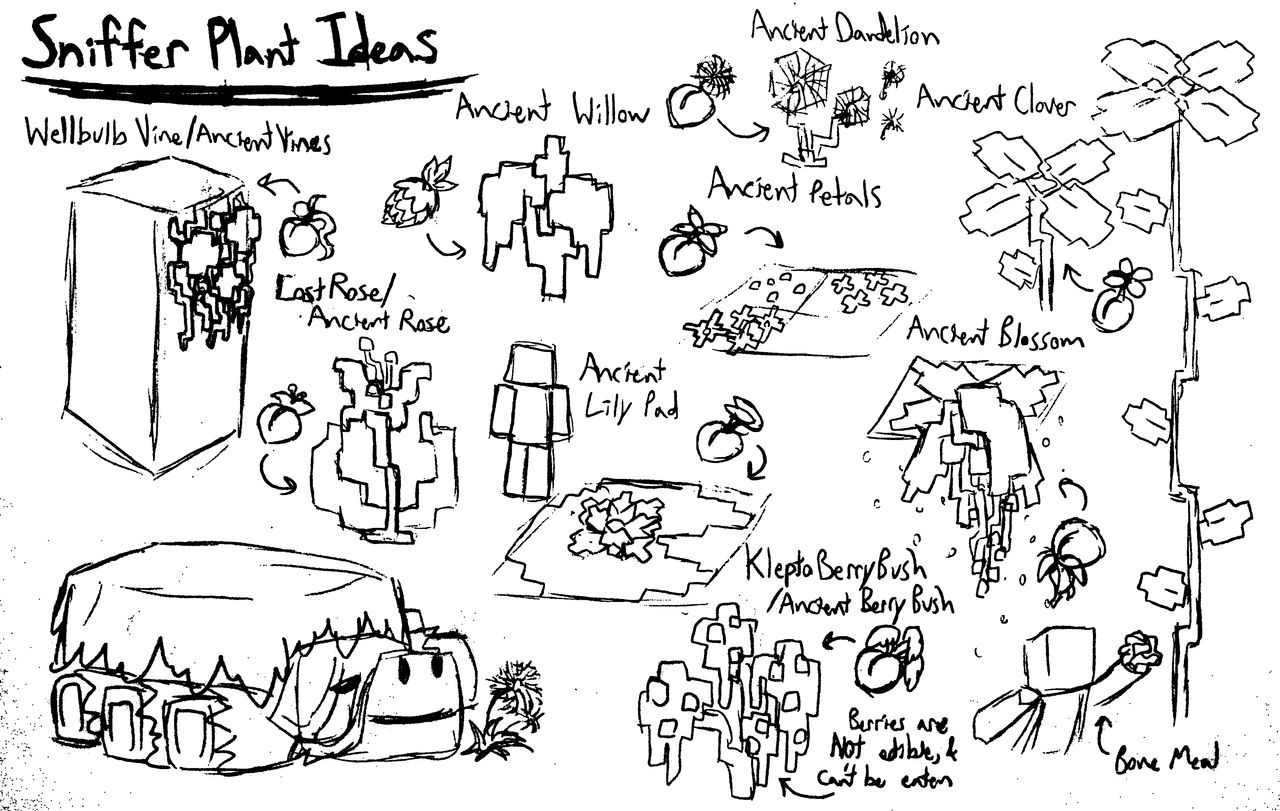 Sniffer Plant Ideas
Wellbulb Vine/Ancient Vines
Ancient Willow
Ancient Dandelion
Ancient Clover
Ancient Petals
Lost Rose/
Ancient Rose
Ancient
Lily Pad
Ancient Blossom
Klepto Berry Bush
/Ancient Berry Bush
Berries are
Not edible, &
can't be eaten
Bone Meal